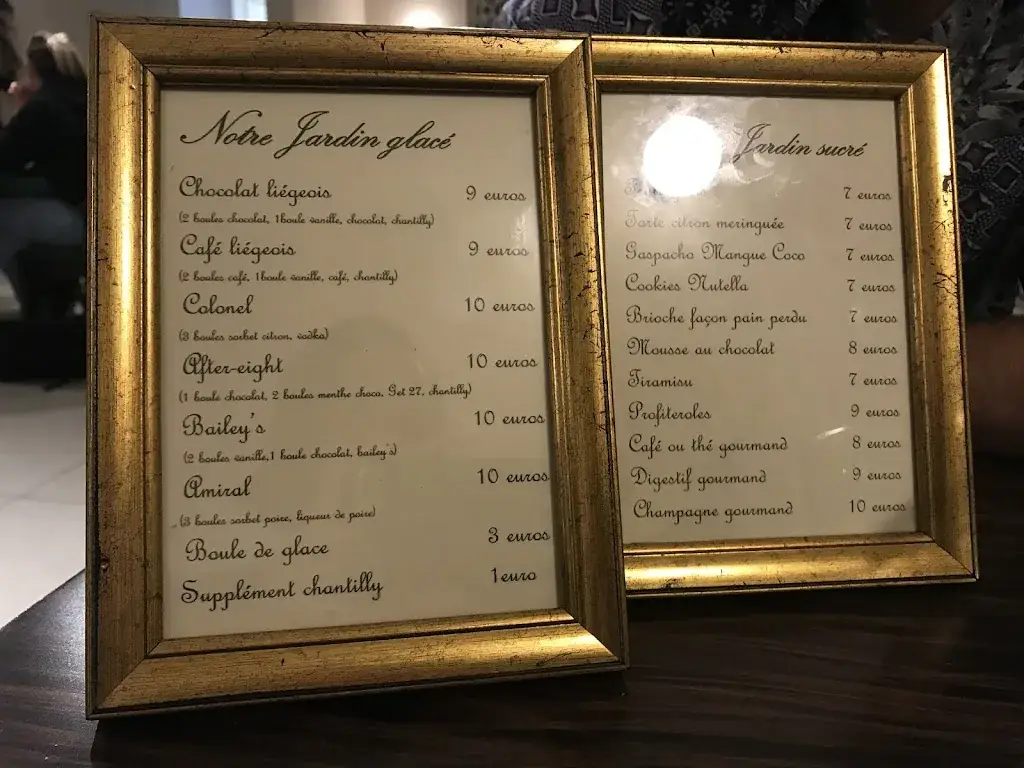 Notre Jardin glacé
Chocolat liégeois 9 euros
(2 boules chocolat, 1boule vanille, chocolat, chantilly)
Café liégeois 9 euros
(2 boules café, 1boule vanille, café, chantilly)
Colonel 10 euros
(3 boules sorbet citron, vodka)
After-eight 10 euros
(1 boule chocolat, 2 boules menthe choco, Get 27, chantilly)
Bailey's 10 euros
(2 boules vanille,1 boule chocolat, bailey's)
Amiral 10 euros
(3 boules sorbet poire, liqueur de poire)
Boule de glace 3 euros
Supplément chantilly 1euro
Jardin sucré
7 euros
Tarte citron meringuée 7 euros
Gaspacho Mangue Coco 7 euros
Cookies Nutella 7 euros
Brioche façon pain perdu 7 euros
Mousse au chocolat 8 euros
Tiramisu 7 euros
Profiteroles 9 euros
Café ou thé gourmand 8 euros
Digestif gourmand 9 euros
Champagne gourmand 10 euros